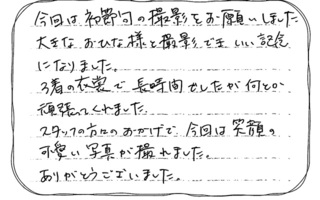 今回は初節句の撮影をお願いしました
大きなおひな様と撮影できいい記念
になりました。
3着の衣裳で長時間でしたが何とか
頑張ってくれました。
スタッフの方々のおかげで今回は笑顔の
可愛い写真が撮れました。
ありがとうございました。